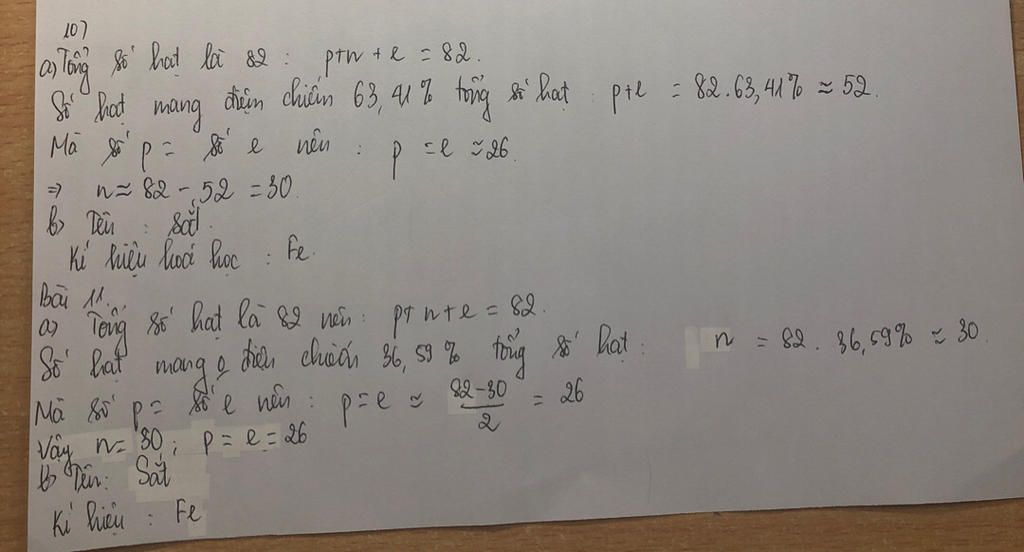 10)
a) Tổng số hạt là 82 : p+n+e = 82.
Số hạt mang điện chiếm 63,41% tổng số hạt : p+e = 82.63,41% ≈ 52.
Mà số p = số e nên : p = e ≈ 26.
⇒ n ≈ 82 - 52 = 30.
b) Tên : sắt.
Kí hiệu hoá học : Fe.
Bài 11.
a) Tổng số hạt là 82 nên : p+n+e = 82.
Số hạt mang 0 điện chiếm 36,59% tổng số hạt : n = 82. 36,59% ≈ 30.
Mà số p = số e nên : p = e ≈ (82-30)/2 = 26
Vậy n = 30 ; p = e = 26
b) Tên : Sắt
Kí hiệu : Fe